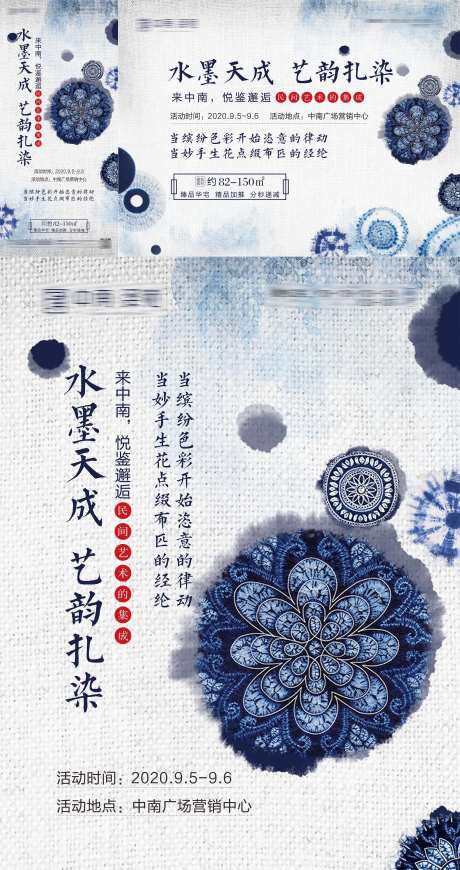 水墨天成 艺韵扎染
来中南，悦鉴邂逅民间艺术的集成
活动时间：2020.9.5-9.6
活动地点：中南广场营销中心
当缤纷色彩开始恣意的律动
当妙手生花点缀布匹的经纶
约82-150㎡
臻品华宅 精品加推 分秒递减
水墨天成 艺韵扎染
来中南，悦鉴邂逅民间艺术的集成
活动时间：2020.9.5-9.6 活动地点：中南广场营销中心
当缤纷色彩开始恣意的律动
当妙手生花点缀布匹的经纶
约82-150㎡
臻品华宅 精品加推 分秒递减
水墨天成 艺韵扎染
来中南，悦鉴邂逅民间艺术的集成
当缤纷色彩开始恣意的律动
当妙手生花点缀布匹的经纶
活动时间：2020.9.5-9.6
活动地点：中南广场营销中心